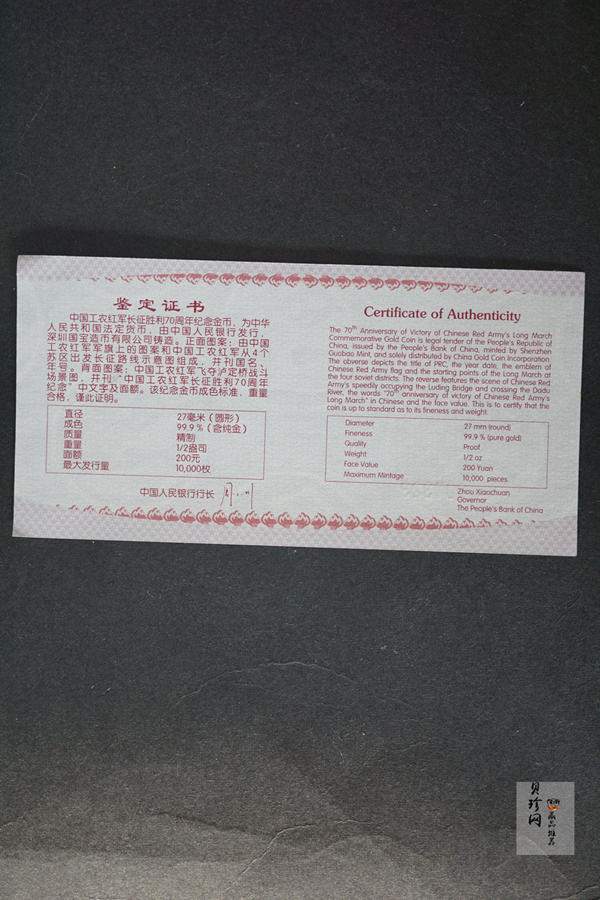 鉴定证书
中国工农红军长征胜利70周年纪念金币，为中华
人民共和国法定货币，由中国人民银行发行，
深圳国宝造币有限公司铸造。正面图案：由中国
工农红军军旗上的图案和中国工农红军从4个
苏区出发长征路线示意图组成，并刊国名、
年号。背面图案：中国工农红军飞夺泸定桥战斗
场景图，并刊“中国工农红军长征胜利70周年
纪念”中文字及面额。该纪念金币成色标准、重量
合格，谨此证明。
直径 27毫米（圆形）
成色 99.9%（含纯金）
质量 精制
重量 1/2盎司
面额 200元
最大发行量 10,000枚
中国人民银行行长
Certificate of Authenticity
The 70th Anniversary of Victory of Chinese Red Army's Long March
Commemorative Gold Coin is legal tender of the People's Republic of
China, issued by the People's Bank of China, minted by Shenzhen
Guobao Mint, and solely distributed by China Gold Coin Incorporation.
The obverse depicts the title of PRC, the year date, the emblem of
Chinese Red Army flag and the starting points of the Long March at
the four soviet districts. The reverse features the scene of Chinese Red
Army's speedily occupying the Luding Bridge and crossing the Dadu
River, the words "70th anniversary of victory of Chinese Red Army's
Long March" in Chinese and the face value. This is to certify that the
coin is up to standard as to its fineness and weight.
Diameter 27 mm (round)
Fineness 99.9 % (pure gold)
Quality Proof
Weight 1/2 oz
Face Value 200 Yuan
Maximum Mintage 10,000 pieces
Zhou Xiaochuan
Governor
The People's Bank of China
贝珍网
藏品推荐